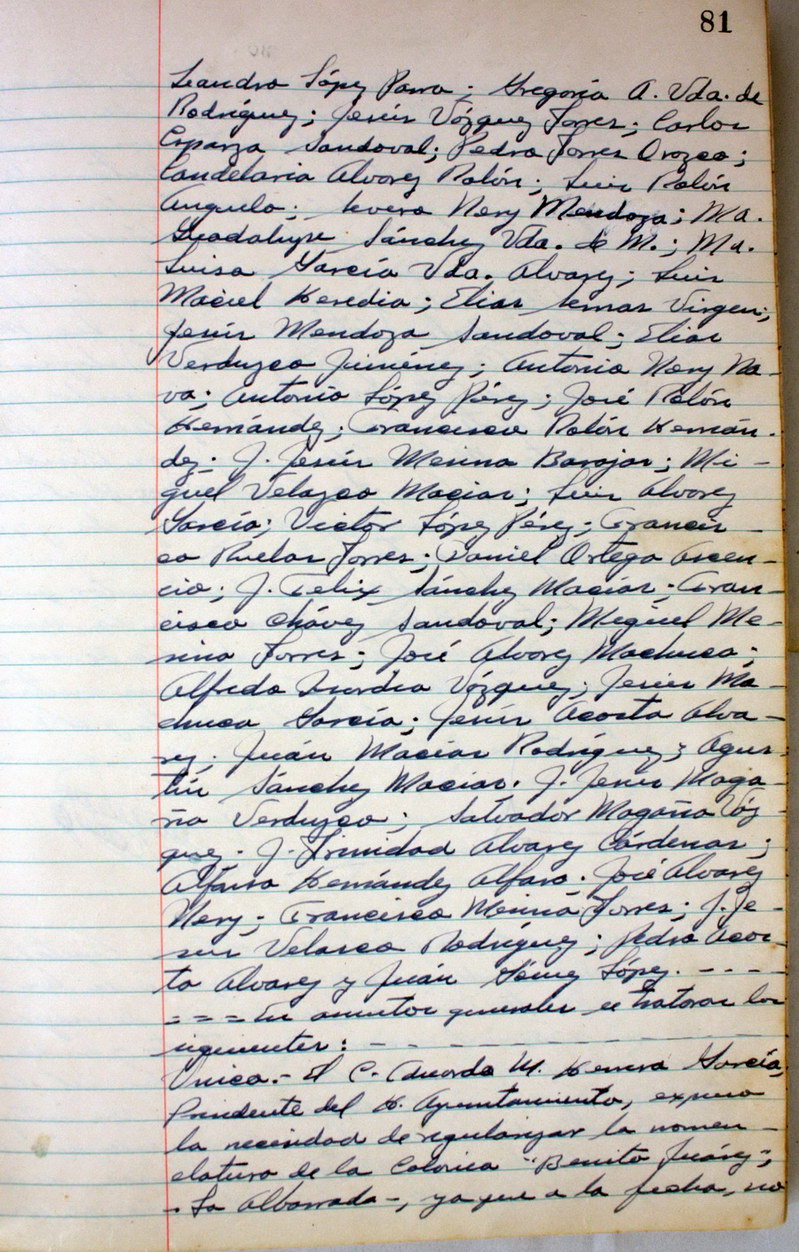 81
Leandro López Parra; Gregoria A. Vda. de
Rodríguez; Jesús Vázquez Torres; Carlos
Esparza Sandoval; Pedro Torres Orozco;
Candelaria Alvarez Rolón; Luis Rolón
Anguelo; Nery Mendoza; Ma.
Guadalupe Sánchez Vda. de M.; Ma.
Luisa García Vda. Alvarez; Luis
Maciel Heredia; Elías Lemus Virgen;
Jesús Mendoza Sandoval; Elías
Verduzco Jiménez; Antonio Nery Na-
va; Antonio López Pérez; José Rolón
Hernández; Francisco Rolón Hernán-
dez; J. Jesús Merina Barajas; Mi-
guel Velazco Macias; Luis Alvarez
García; Victor López Pérez; Francis-
co Ruelas Torres; Daniel Ortega Ascen-
cio; J. Felix Sánchez Macías; Fran-
cisco Chávez Sandoval; Miguel Me-
rino Torres; José Alvarez Machuca;
Alfredo Vázquez; Javier Ma-
chuca García; Jesús Acosta Alva-
rez; Juán Macías Rodríguez; Agus-
tín Sánchez Macias. J. Jesús Maga-
ña Verduzco; Salvador Magaña Váz-
quez. J. Trinidad Alvarez Cárdenas;
Alfaro Hernández Alfaro. José Alvarez
Nery; Francisco Merina Torres; J. Je-
sus Velasco Rodríguez; Pedro Acos-
ta Alvarez y Juán Gómez López. - - -
= = = En asuntos generales se trataron los
siguientes: - - - - - -
Unico.- El C. Eduardo M. Herrera García,
Presidente del H. Ayuntamiento, expuso
la necesidad de regularizar la nomen-
clatura de la Colonia "Benito Juárez",
- La Albarrada -, ya que a la fecha, no